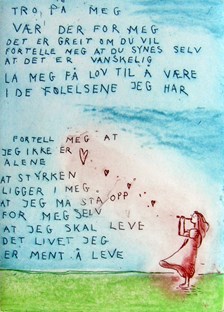 TRO, PÅ MEG
VÆR DER FOR MEG
DET ER GREIT OM DU VIL
FORTELLE MEG AT DU SYNES SELV
AT DET ER VANSKELIG
LA MEG FÅ LOV TIL Å VÆRE
I DE FØLELSENE JEG HAR
FORTELL MEG AT
JEG IKKE ER
ALENE
AT STYRKEN
LIGGER I MEG
AT JEG MÅ STÅ OPP
FOR MEG SELV
AT JEG SKAL LEVE
DET LIVET JEG
ER MENT Å LEVE